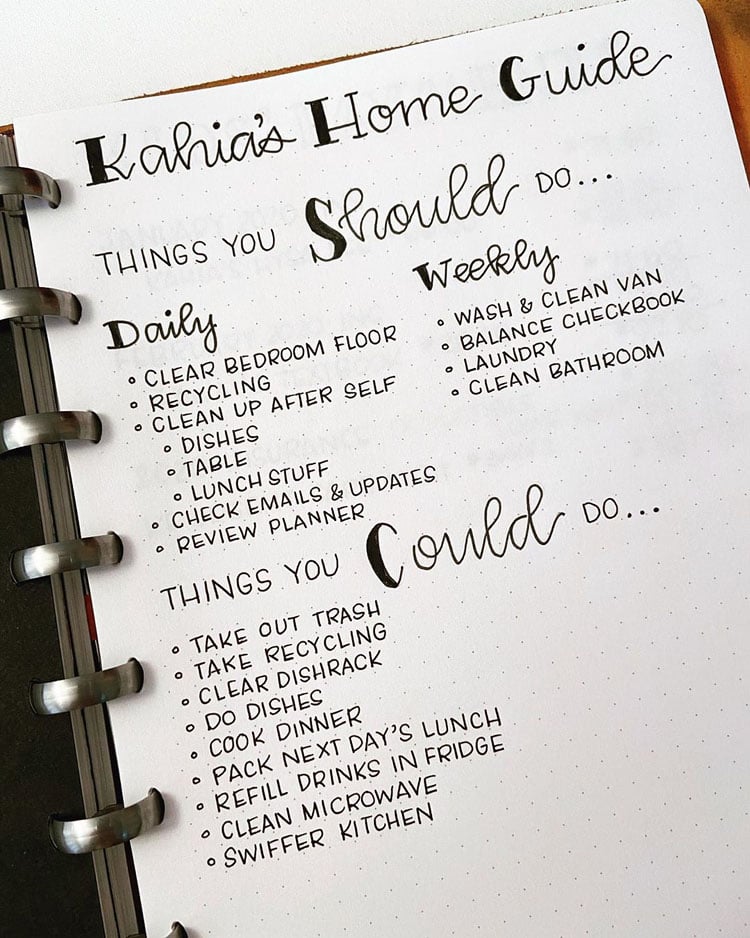 Kahia's Home Guide
THINGS YOU Should DO...
Daily
◦ CLEAR BEDROOM FLOOR
◦ RECYCLING
◦ CLEAN UP AFTER SELF
◦ DISHES
◦ TABLE
◦ LUNCH STUFF
◦ CHECK EMAILS & UPDATES
◦ REVIEW PLANNER
Weekly
◦ WASH & CLEAN VAN
◦ BALANCE CHECKBOOK
◦ LAUNDRY
◦ CLEAN BATHROOM
THINGS YOU Could DO...
◦ TAKE OUT TRASH
◦ TAKE RECYCLING
◦ CLEAR DISHRACK
◦ DO DISHES
◦ COOK DINNER
◦ PACK NEXT DAY'S LUNCH
◦ REFILL DRINKS IN FRIDGE
◦ CLEAN MICROWAVE
◦ SWIFFER KITCHEN